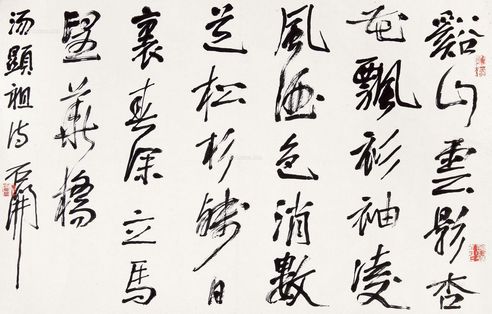 谿山雲影杏
花飄衫袖凌
風酒色消數
道松杉殘日
裏春深立馬
望華橋
汤顯祖诗 石開